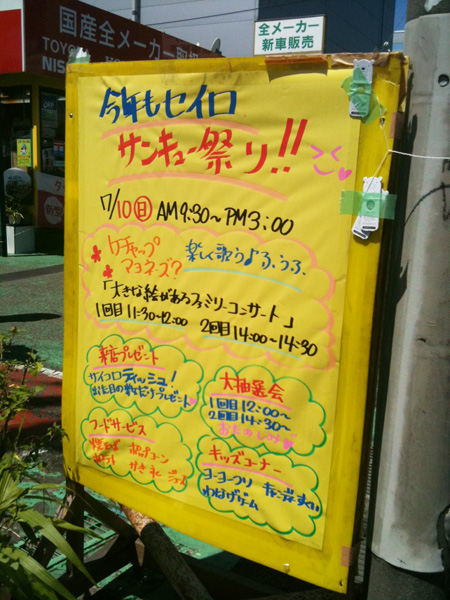 国産全メーカー取扱
TOYO
NIS
全メーカー
新車販売
今年もセイロ
サンキュー祭り!!
7/10(日) AM9:30~PM3:00
ケチャップ
マヨネーズ?
楽しく歌う♪ふ、うふ、
「大きな絵があるファミリーコンサート」
1回目 11:30~12:00 2回目 14:00~14:30
来店プレゼント
サイコロティッシュ!
出た目の数だけプレゼント
大抽選会
1回目 12:00~
2回目 14:30~
おたのしみ
フードサービス
焼そば ポップコーン
かき氷 ジュース
キッズコーナー
ヨーヨーつり
わなげゲーム